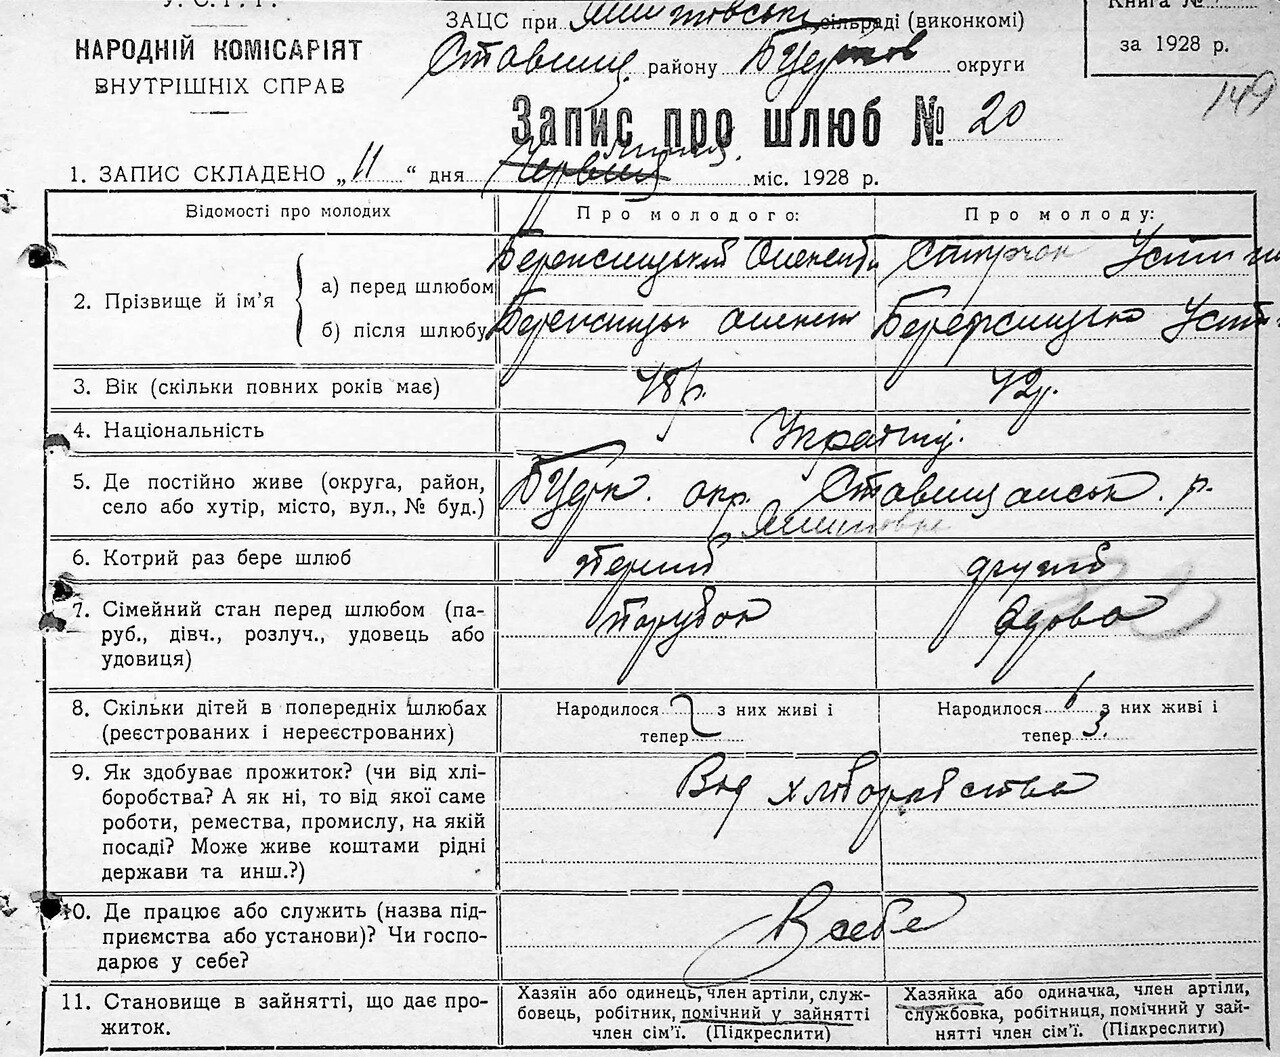 У.С.Р.Р.
НАРОДНІЙ КОМІСАРІЯТ
ВНУТРІШНІХ СПРАВ
ЗАЦС при сільраді (виконкомі)
району округи
Книга №
за 1928 р.
149
Запис про шлюб № 20
1. ЗАПИС СКЛАДЕНО „11“ дня Червня Липня міс. 1928 р.
Відомості про молодих
Про молодого:
Про молоду:
2. Прізвище й ім’я
а) перед шлюбом
б) після шлюбу
3. Вік (скільки повних років має)
48 р.
42 р.
4. Національність
Українці.
5. Де постійно живе (округа, район,
село або хутір, місто, вул., № буд.)
окр. р.
6. Котрий раз бере шлюб
перший
другий
7. Сімейний стан перед шлюбом (па-
руб., дівч., розлуч., удовець або
удовиця)
Парубок
Вдова
8. Скільки дітей в попередніх шлюбах
(реєстрованих і нереєстрованих)
Народилося з них живі і
тепер
Народилося 6 з них живі і
тепер 3.
9. Як здобуває прожиток? (чи від хлі-
боробства? А як ні, то від якої саме
роботи, ремества, промислу, на якій
посаді? Може живе коштами рідні
держави та инш.?)
Від хліборобства
10. Де працює або служить (назва під-
приємства або установи)? Чи госпо-
дарює у себе?
В себе
11. Становище в зайнятті, що дає про-
житок.
Хазяїн або одинець, член артілі, служ-
бовець, робітник, помічний у зайнятті
член сім’ї. (Підкреслити)
Хазяйка або одиначка, член артілі,
службовка, робітниця, помічний у зай-
нятті член сім’ї. (Підкреслити)